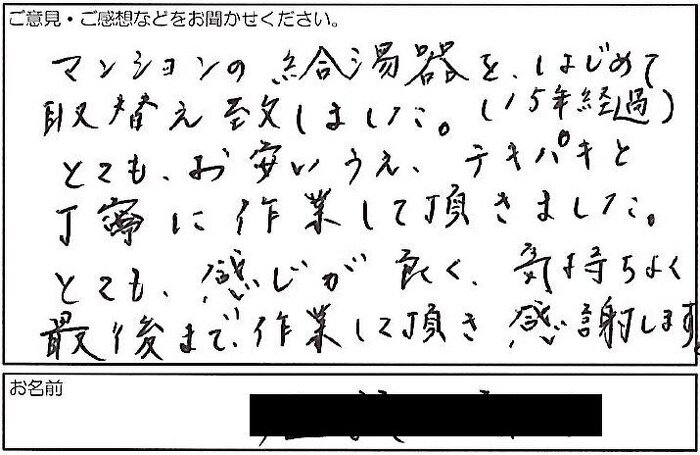 ご意見・ご感想などをお聞かせください。
マンションの給湯器を、はじめて
取替え致しました。(15年経過)
とても、お安いうえ、テキパキと
丁寧に作業して頂きました。
とても、感じが良く、気持ちよく
最後まで、作業して頂き感謝します
お名前